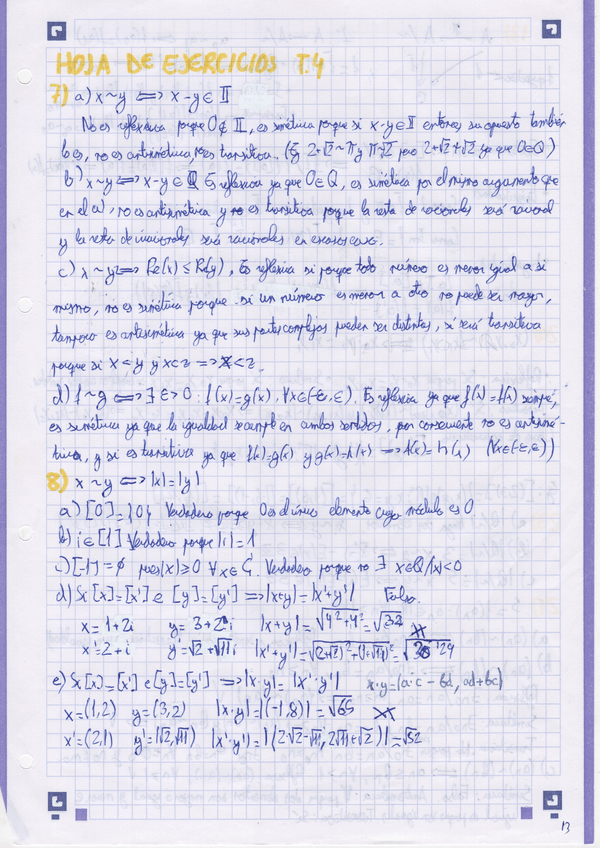 HOJA DE EJERCICIOS T.4
7) a) x~y ⟺ x-y ∈ 𝕀
No es reflexiva porque 0∉𝕀, es simétrica porque si x-y∈𝕀 entonces su opuesto también
lo es, no es antisimétrica, es transitiva. (Ej 2+√2 ~ π y π √2 pero 2+√2+√2 ya que 0∈Q)
b) x~y ⟺ x-y∈Q Es reflexiva ya que 0∈Q, es simétrica por el mismo argumento que
en el a), no es antisimétrica y no es transitiva porque la resta de racionales será racional
y la resta de irracionales será racionales en escasos casos.
c) x~y ⟺ Re(x) ≤ Re(y), Es reflexiva si porque todo número es menor igual a si
mismo, no es simétrica porque si un número es menor a otro no puede ser mayor,
tampoco es antisimétrica ya que sus partes complejas pueden ser distintas, si será transitiva
porque si x<y y x<z ⟹ x<z.
d) f~g ⟺ ∃ ε>0 : f(x)=g(x), ∀x∈(-ε,ε). Es reflexiva ya que f(x)=f(x) siempre,
es simétrica ya que la igualdad se cumple en ambos sentidos, por consiguiente no es antisimé-
trica, y si es transitiva ya que f(x)=g(x) y g(x)=h(x) ⟹ f(x)=h(x) (∀x∈(-ε,ε))
8) x~y ⟺ |x|=|y|
a) [0]={0} Verdadero porque 0 es el único elemento cuyo módulo es 0
b) i∈[1] Verdadero porque |i|=1
c) [-1]=∅ pues |x|≥0 ∀x∈C. Verdadero porque no ∃ x∈Q/|x|<0
d) Si [x]=[x'] e [y]=[y'] ⟹ |x+y|=|x'+y'| Falso.
x=1+2i y=3+2i |x+y|=√4²+4²=√32
x'=2+i y'=√2+√11i |x'+y'|=√(2+√2)²+(1+√11)²=√30'29
e) Si [x]=[x'] e [y]=[y'] ⟹ |x·y|=|x'·y'| x·y=(a·c-bd, ad+bc)
x=(1,2) y=(3,2) |x·y|=|(-1,8)|=√65
x'=(2,1) y'=(√2,√11) |x'·y'|=|(2√2-√11, 2√11+√2)|=√52
13